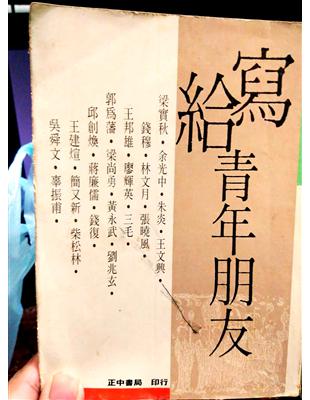 寫給青年朋友
梁實秋・余光中・朱炎・王文興・
錢穆・林文月・張曉風・
王邦雄・廖輝英・三毛・
郭爲藩・梁尚勇・黃永武・劉兆玄・
邱創煥・蔣廉儒・錢復・
王建煊・簡又新・柴松林・
吳舜文・辜振甫・
正中書局 印行